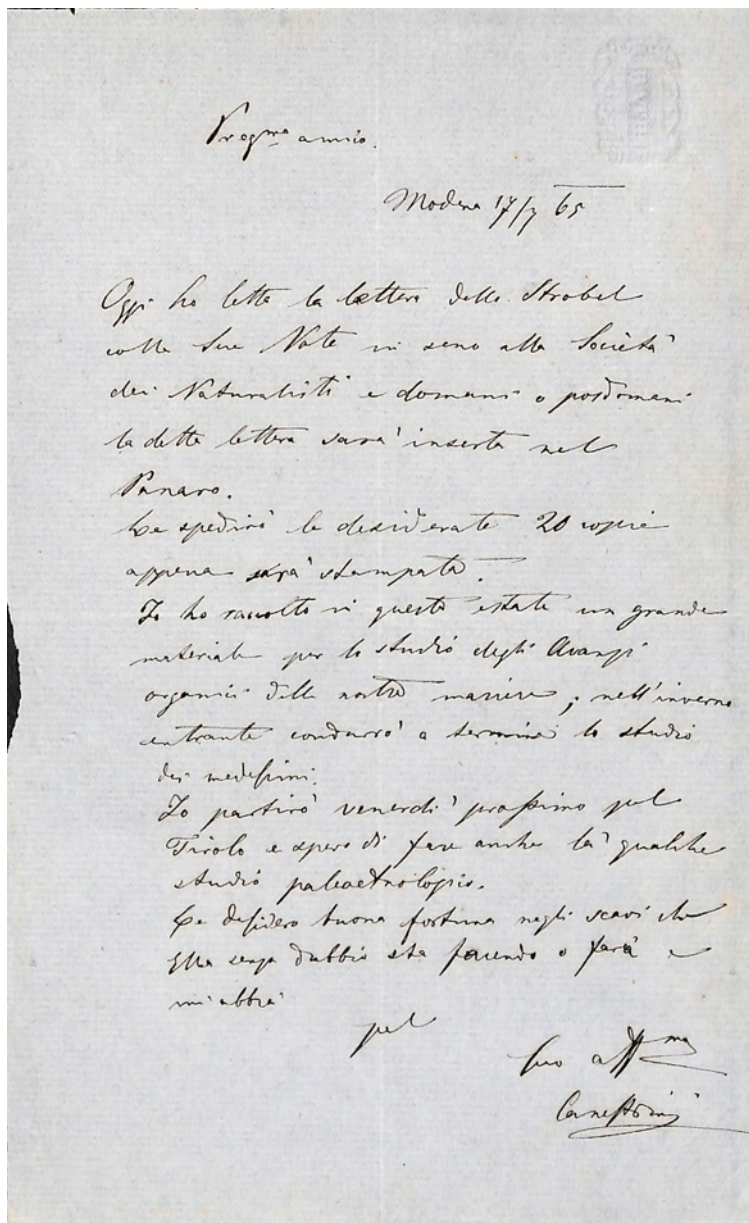 Pregmo amico.
Modena 17/7 65
Oggi ho letto la lettera dello Strobel
colle Sue Note in seno alla Società
dei Naturalisti e domani o posdomani
la detta lettera sarà inserta nel
Panaro.
Le spedirò le desiderate 20 copie
appena sarà stampata.
Io ho raccolto in questa estate un grande
materiale per lo studio degli Avanzi
organici delle nostre mariere; nell'inverno
entrante condurrò a termine lo studio
dei medesimi.
Io partirò venerdì prossimo pel
Tirolo e spero di fare anche là qualche
studio paleoetnologico.
Le desidero buona fortuna negli scavi che
Ella senza dubbio sta facendo o farà e
mi abbia
pel
Suo affmo
Canestrini